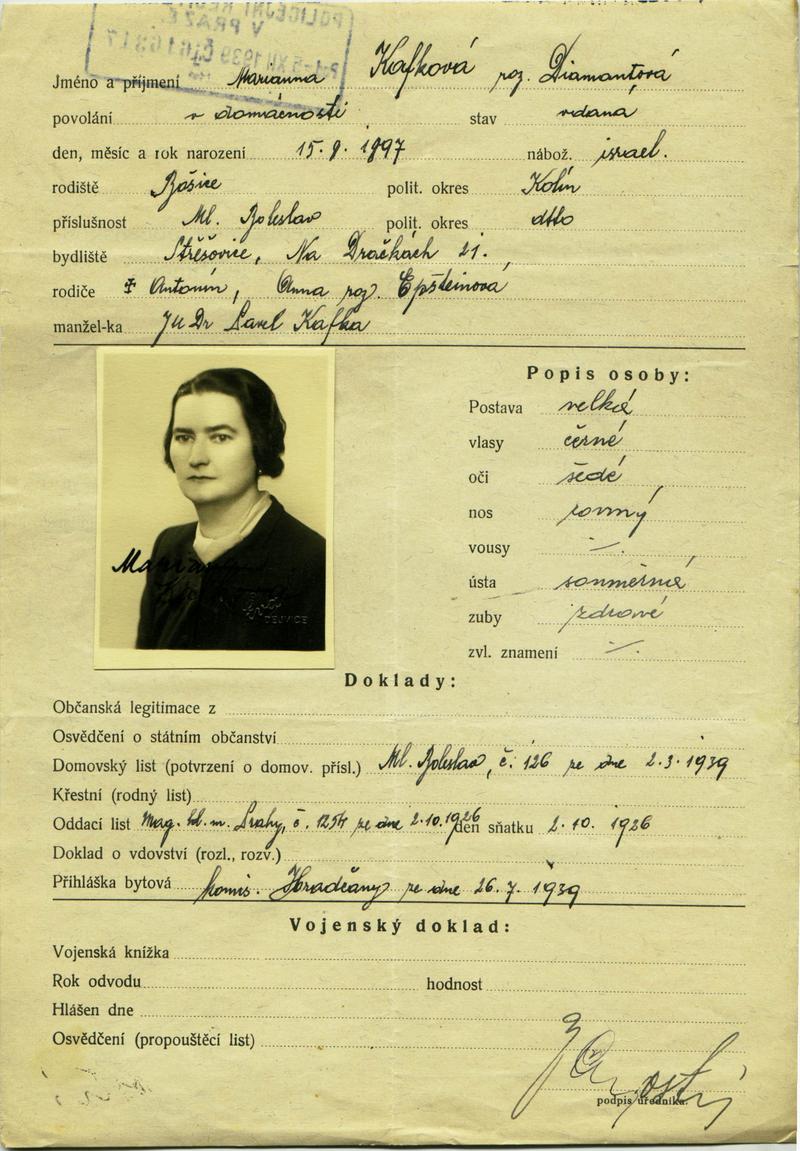 POLICEJNÍ
V PRAZE
XII 1939
Jméno a příjmení Marianna Kafková roz. Diamantová
povolání v domácnosti stav vdaná
den, měsíc a rok narození 15. 9. 1897 nábož. israel.
rodiště Bošice polit. okres Kolín
příslušnost Ml. Boleslav polit. okres dtto
bydliště Střešovice, Na Dračkách 21.
rodiče Antonín, Anna roz. Epsteinová
manžel-ka JuDr Pavel Kafka
Popis osoby:
Postava velká
vlasy černé
oči šedé
nos rovný
vousy ·/.
ústa souměrná
zuby zdravé
zvl. znamení ·/.
DEJVICE
Doklady:
Občanská legitimace z
Osvědčení o státním občanství
Domovský list (potvrzení o domov. přísl.) Ml. Boleslav, č. 126 ze dne 2. 3. 1939
Křestní (rodný list)
Oddací list Mag. hl. m. Prahy, č. 1254 ze dne 2. 10. 1926 den sňatku 2. 10. 1926
Doklad o vdovství (rozl., rozv.)
Přihláška bytová komis. Hradčany ze dne 26. 7. 1939
Vojenský doklad:
Vojenská knížka
Rok odvodu hodnost
Hlášen dne
Osvědčení (propouštěcí list)
podpis úředníka.